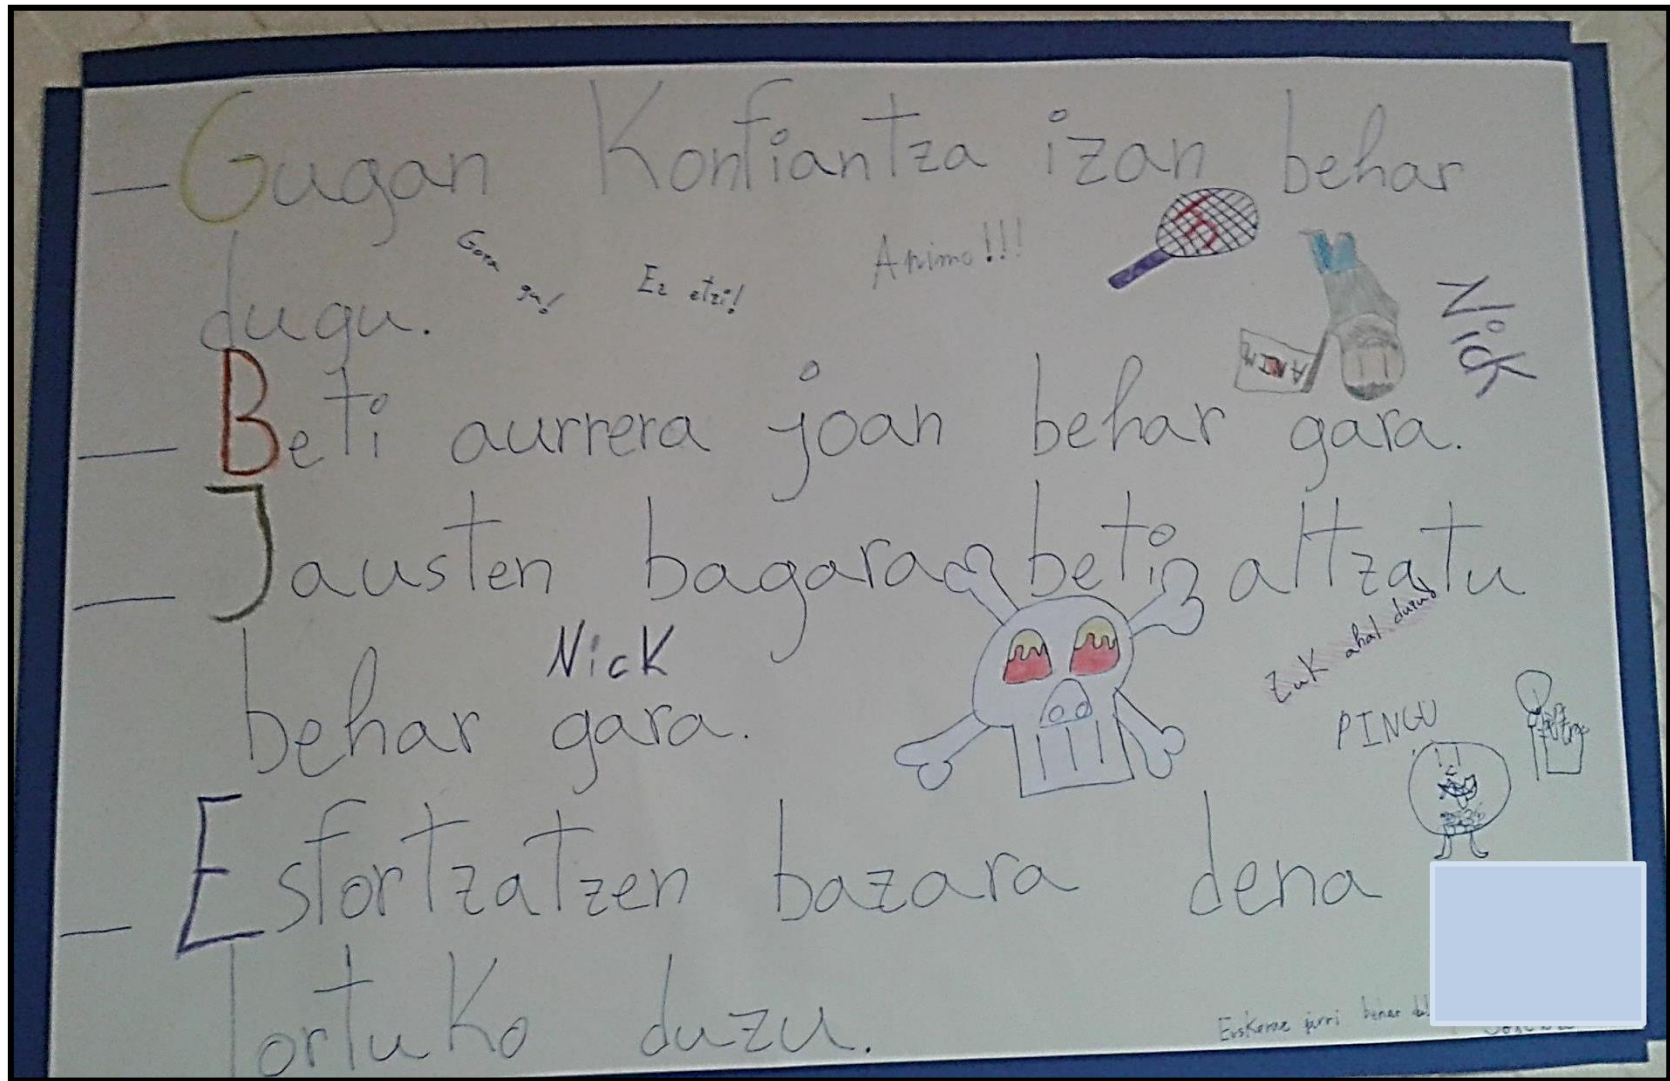 — Gugan Konfiantza izan behar
dugu.
Gora gu!
Ez etzi!
Animo!!!
ANIMO
Nick
— Beti aurrera joan behar gara.
— Jausten bagara beti altzatu
behar gara.
Nick
Zuk ahal duzu
PINGU
— Esfortzatzen bazara dena
lortuko duzu.
Euskaraz jarri behar